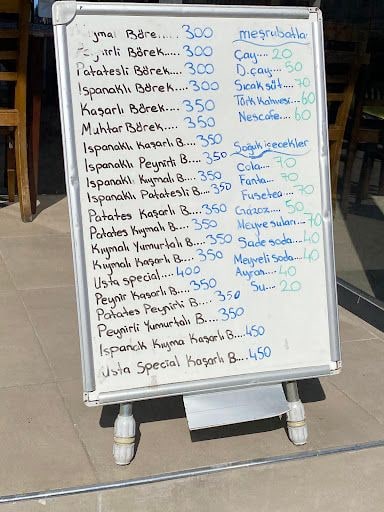 Kıymal Böre..... 300
Peynirli Börek.... 300
Patatesli Börek.... 300
Ispanaklı Börek.... 300
Kaşarlı Börek.... 350
Muhtar Börek.... 350
Ispanaklı Kaşarlı B.... 350
Ispanaklı Peynirli B.... 350
Ispanaklı Kıymalı B.... 350
Ispanaklı Patatesli B.... 350
Patates Kaşarlı B.... 350
Patates Kıymalı B.... 350
Kıymalı Yumurtalı B.... 350
Kıymalı Kaşarlı B.... 350
Usta special.... 400
Peynir Kaşarlı B.... 350
Patates Peynirli B.... 350
Peynirli Yumurtalı B.... 350
Ispanak Kıyma Kaşarlı B...450
Usta Special Kaşarlı B.... 450
meşrubatla
Çay.... 20
D.çay.... 50
Sıcak süt.. 70
Türk Kahvesi... 60
Nescafe.... 60
Soğuk içecekler
Cola.... 70
Fanta.... 70
Fusetea.... 70
Gazoz.... 50
Meyve suları... 70
Sade soda.... 40
Meyveli soda... 40
Ayran.... 40
Su.... 20